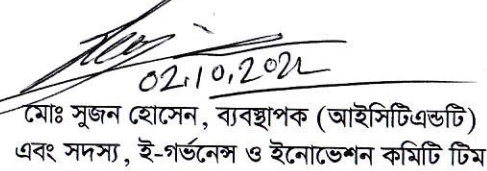 02.10.2022
মোঃ সুজন হোসেন, ব্যবস্থাপক (আইসিটিএন্ডটি)
এবং সদস্য, ই-গর্ভনেন্স ও ইনোভেশন কমিটি টিম